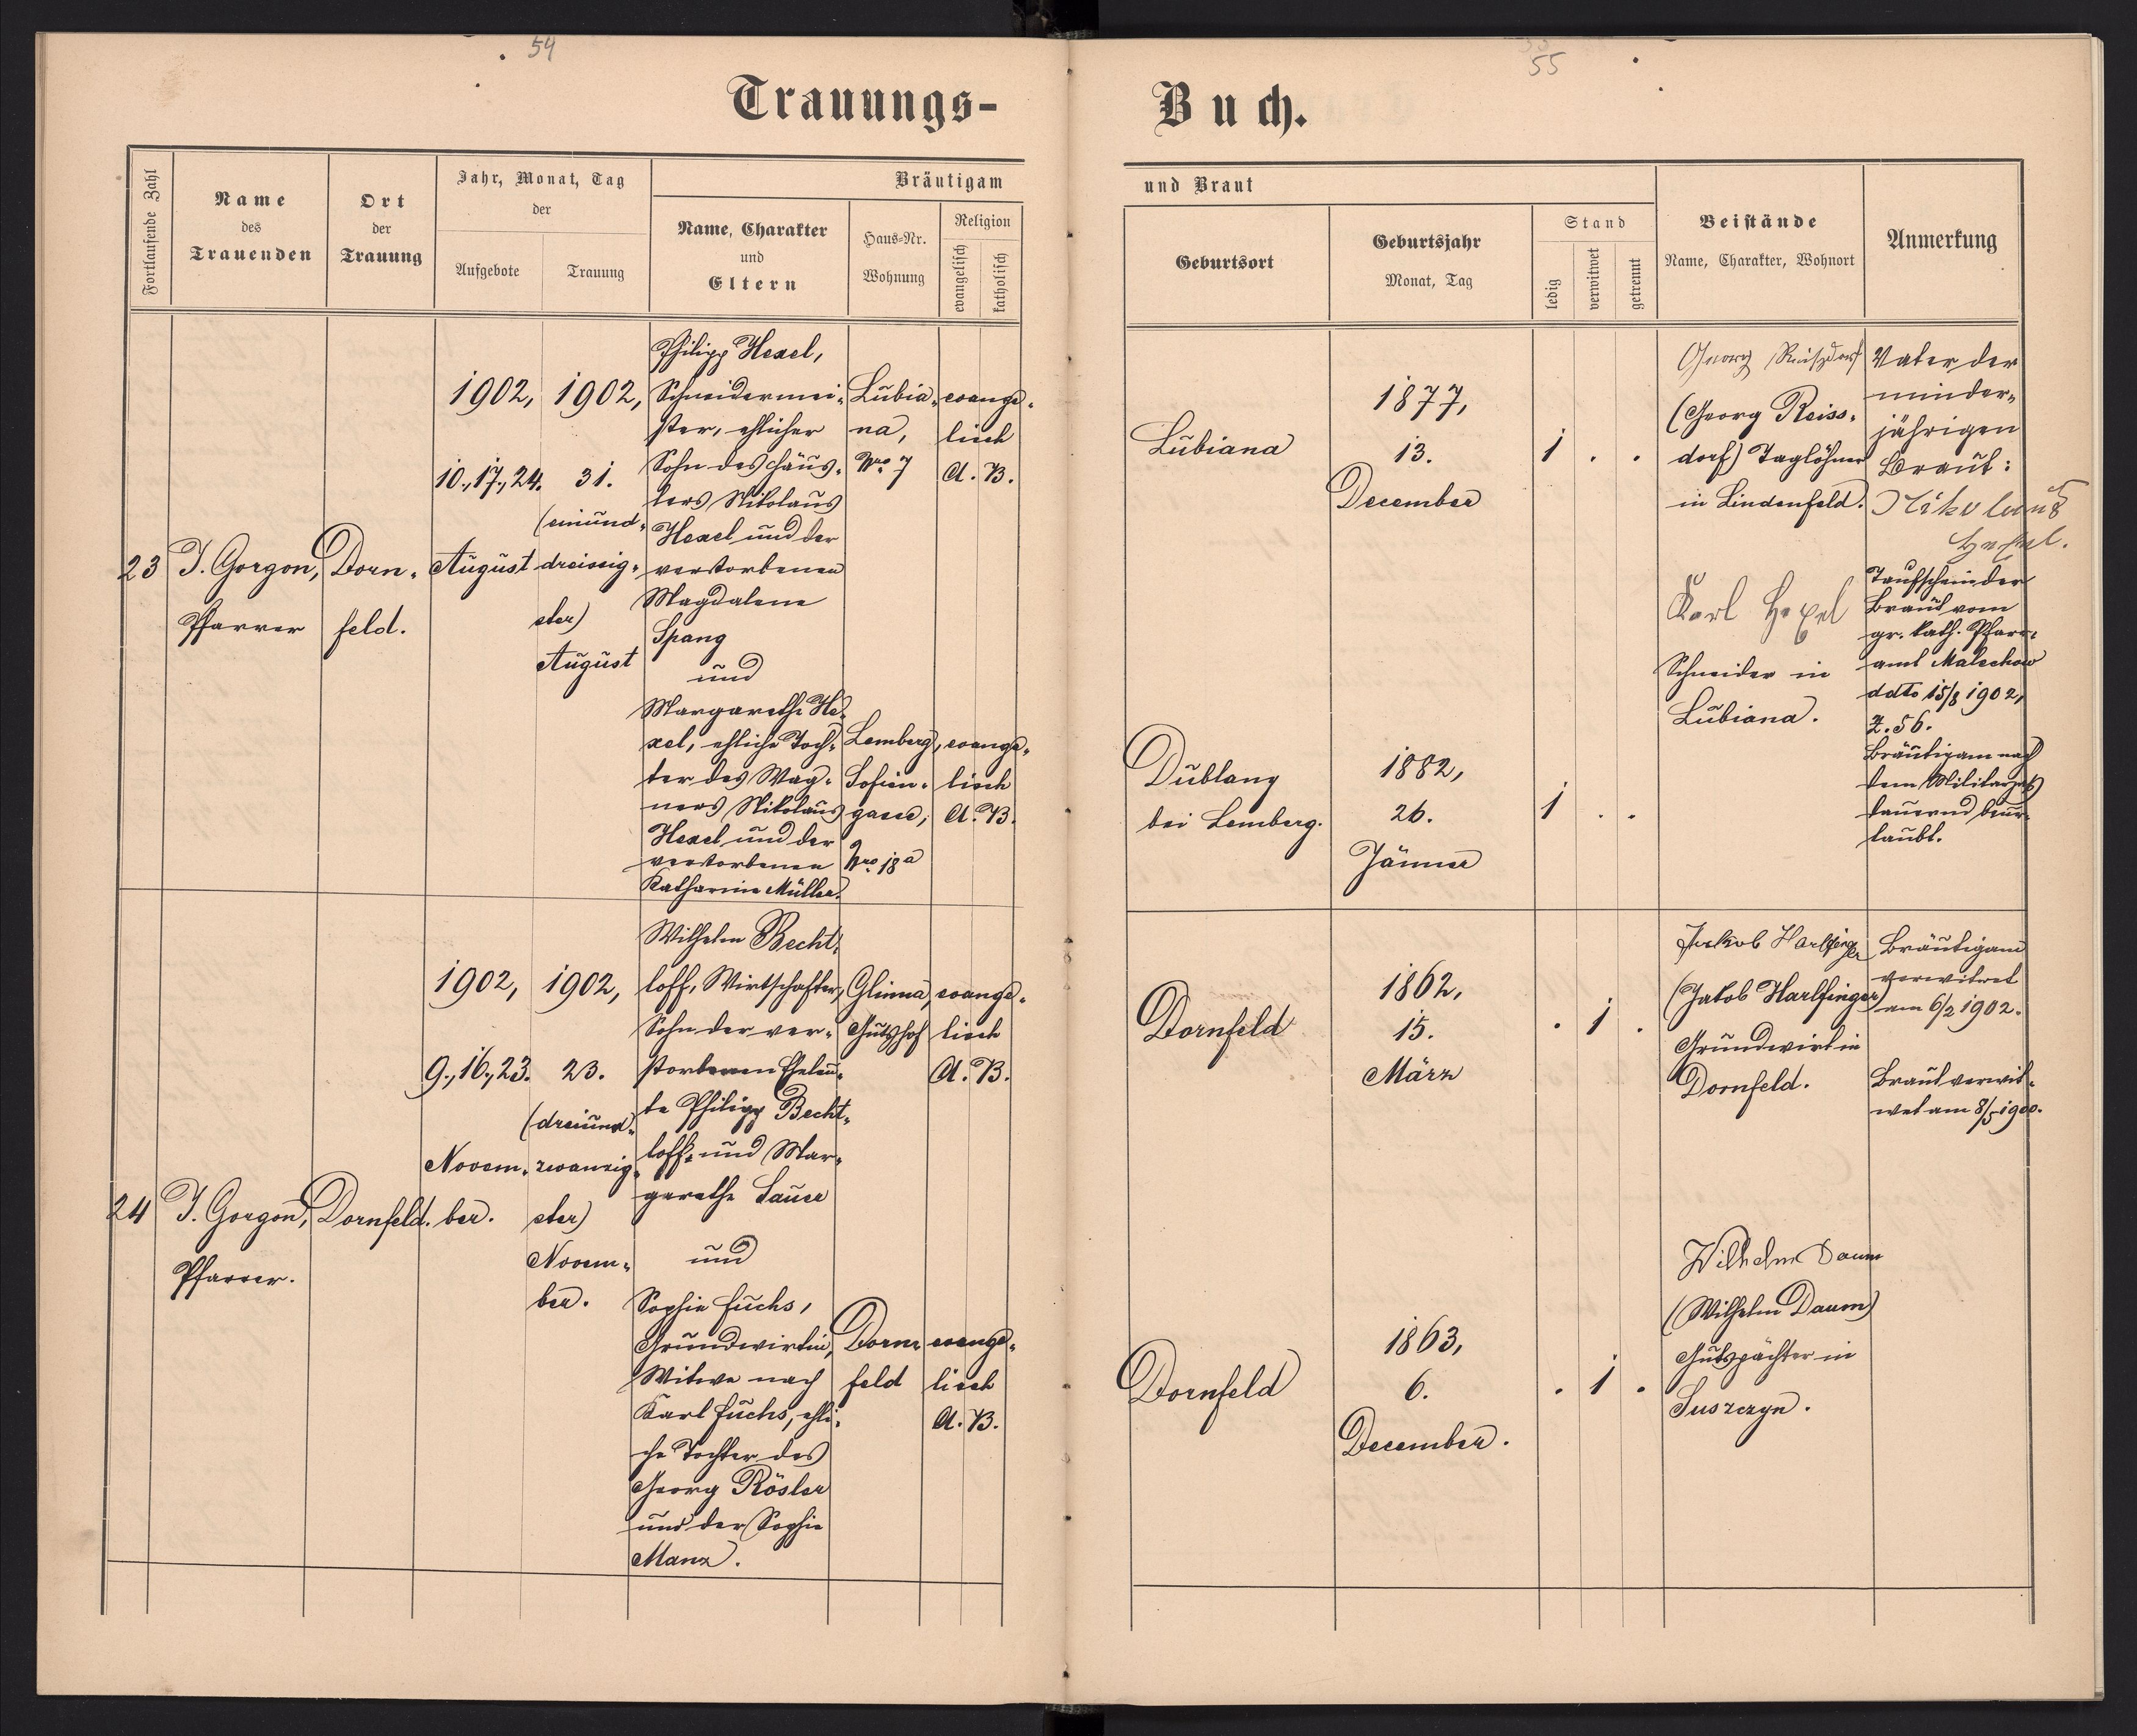 54
55
Trauungs-
Buch.
Fortlaufende Zahl
Name
des
Trauenden
Ort
der
Trauung
Jahr, Monat, Tag
der
Aufgebote
Trauung
Bräutigam
Name, Charakter
und
Eltern
Haus-Nr.
Wohnung
Religion
evangelisch
katholisch
und Braut
Geburtsort
Geburtsjahr
Monat, Tag
Stand
ledig
verwitwet
getrennt
Beistände
Name, Charakter, Wohnort
Anmerkung
23
J. Gorgon,
Pfarrer
Dorn-
feld.
1902,
10., 17., 24.
August
1902,
31.
(einund-
dreissig-
ster)
August
Philipp Hexel,
Schneidermei-
ster, ehlicher
Sohn des Häus-
lers Nikolaus
Hexel und der
verstorbenen
Magdalene
Spang
und
Margarethe He-
xel, ehliche Toch-
ter des Wag-
ners Nikolaus
Hexel und der
verstorbenen
Katharine Müller.
Lubia-
na,
Nro 7
Lemberg,
Sofien-
gasse,
Nro 18a
evange-
lisch
A. B.
evange-
lisch
A. B.
Lubiana
Dublany
bei Lemberg.
1877,
13.
December
1882,
26.
Jänner
1 . .
1 . .
Georg Reiszdorf
(Georg Reiss-
dorf) Taglöhner
in Lindenfeld.
Karl Hexel
Schneider in
Lubiana.
Vater der
minder-
jährigen
Braut:
Nikolaus
Hexel.
Taufschein der
Braut vom
gr. kath. Pfarr-
amt Malechow
ddto 15/8 1902,
Z. 56.
Bräutigam nach
dem Militärpaß
dauernd beur-
laubt.
24
J. Gorgon,
Pfarrer.
Dornfeld.
1902,
9., 16., 23.
Novem-
ber.
1902,
23.
(dreiund-
zwanzig-
ster)
Novem-
ber.
Wilhelm Becht-
loff, Wirtschafter,
Sohn der ver-
storbenen Eheleu-
te Philipp Becht-
loff und Mar-
garethe Sauer
und
Sophie Fuchs,
Grundwirtin,
Witwe nach
Karl Fuchs, ehli-
che Tochter des
Georg Rösler
und der Sophie
Manz.
Glinna,
Gutshof
Dorn-
feld
evange-
lisch
A. B.
evange-
lisch
A. B.
Dornfeld
Dornfeld
1862,
15.
März
1863,
6.
December.
. 1 .
. 1 .
Jakob Harlfinger
(Jakob Harlfinger)
Grundwirt in
Dornfeld.
Wilhelm Daum
(Wilhelm Daum)
Gutspächter in
Suszczyn.
Bräutigam
verwitwet
am 6/2 1902.
Braut verwit-
wet am 8/5 1900.